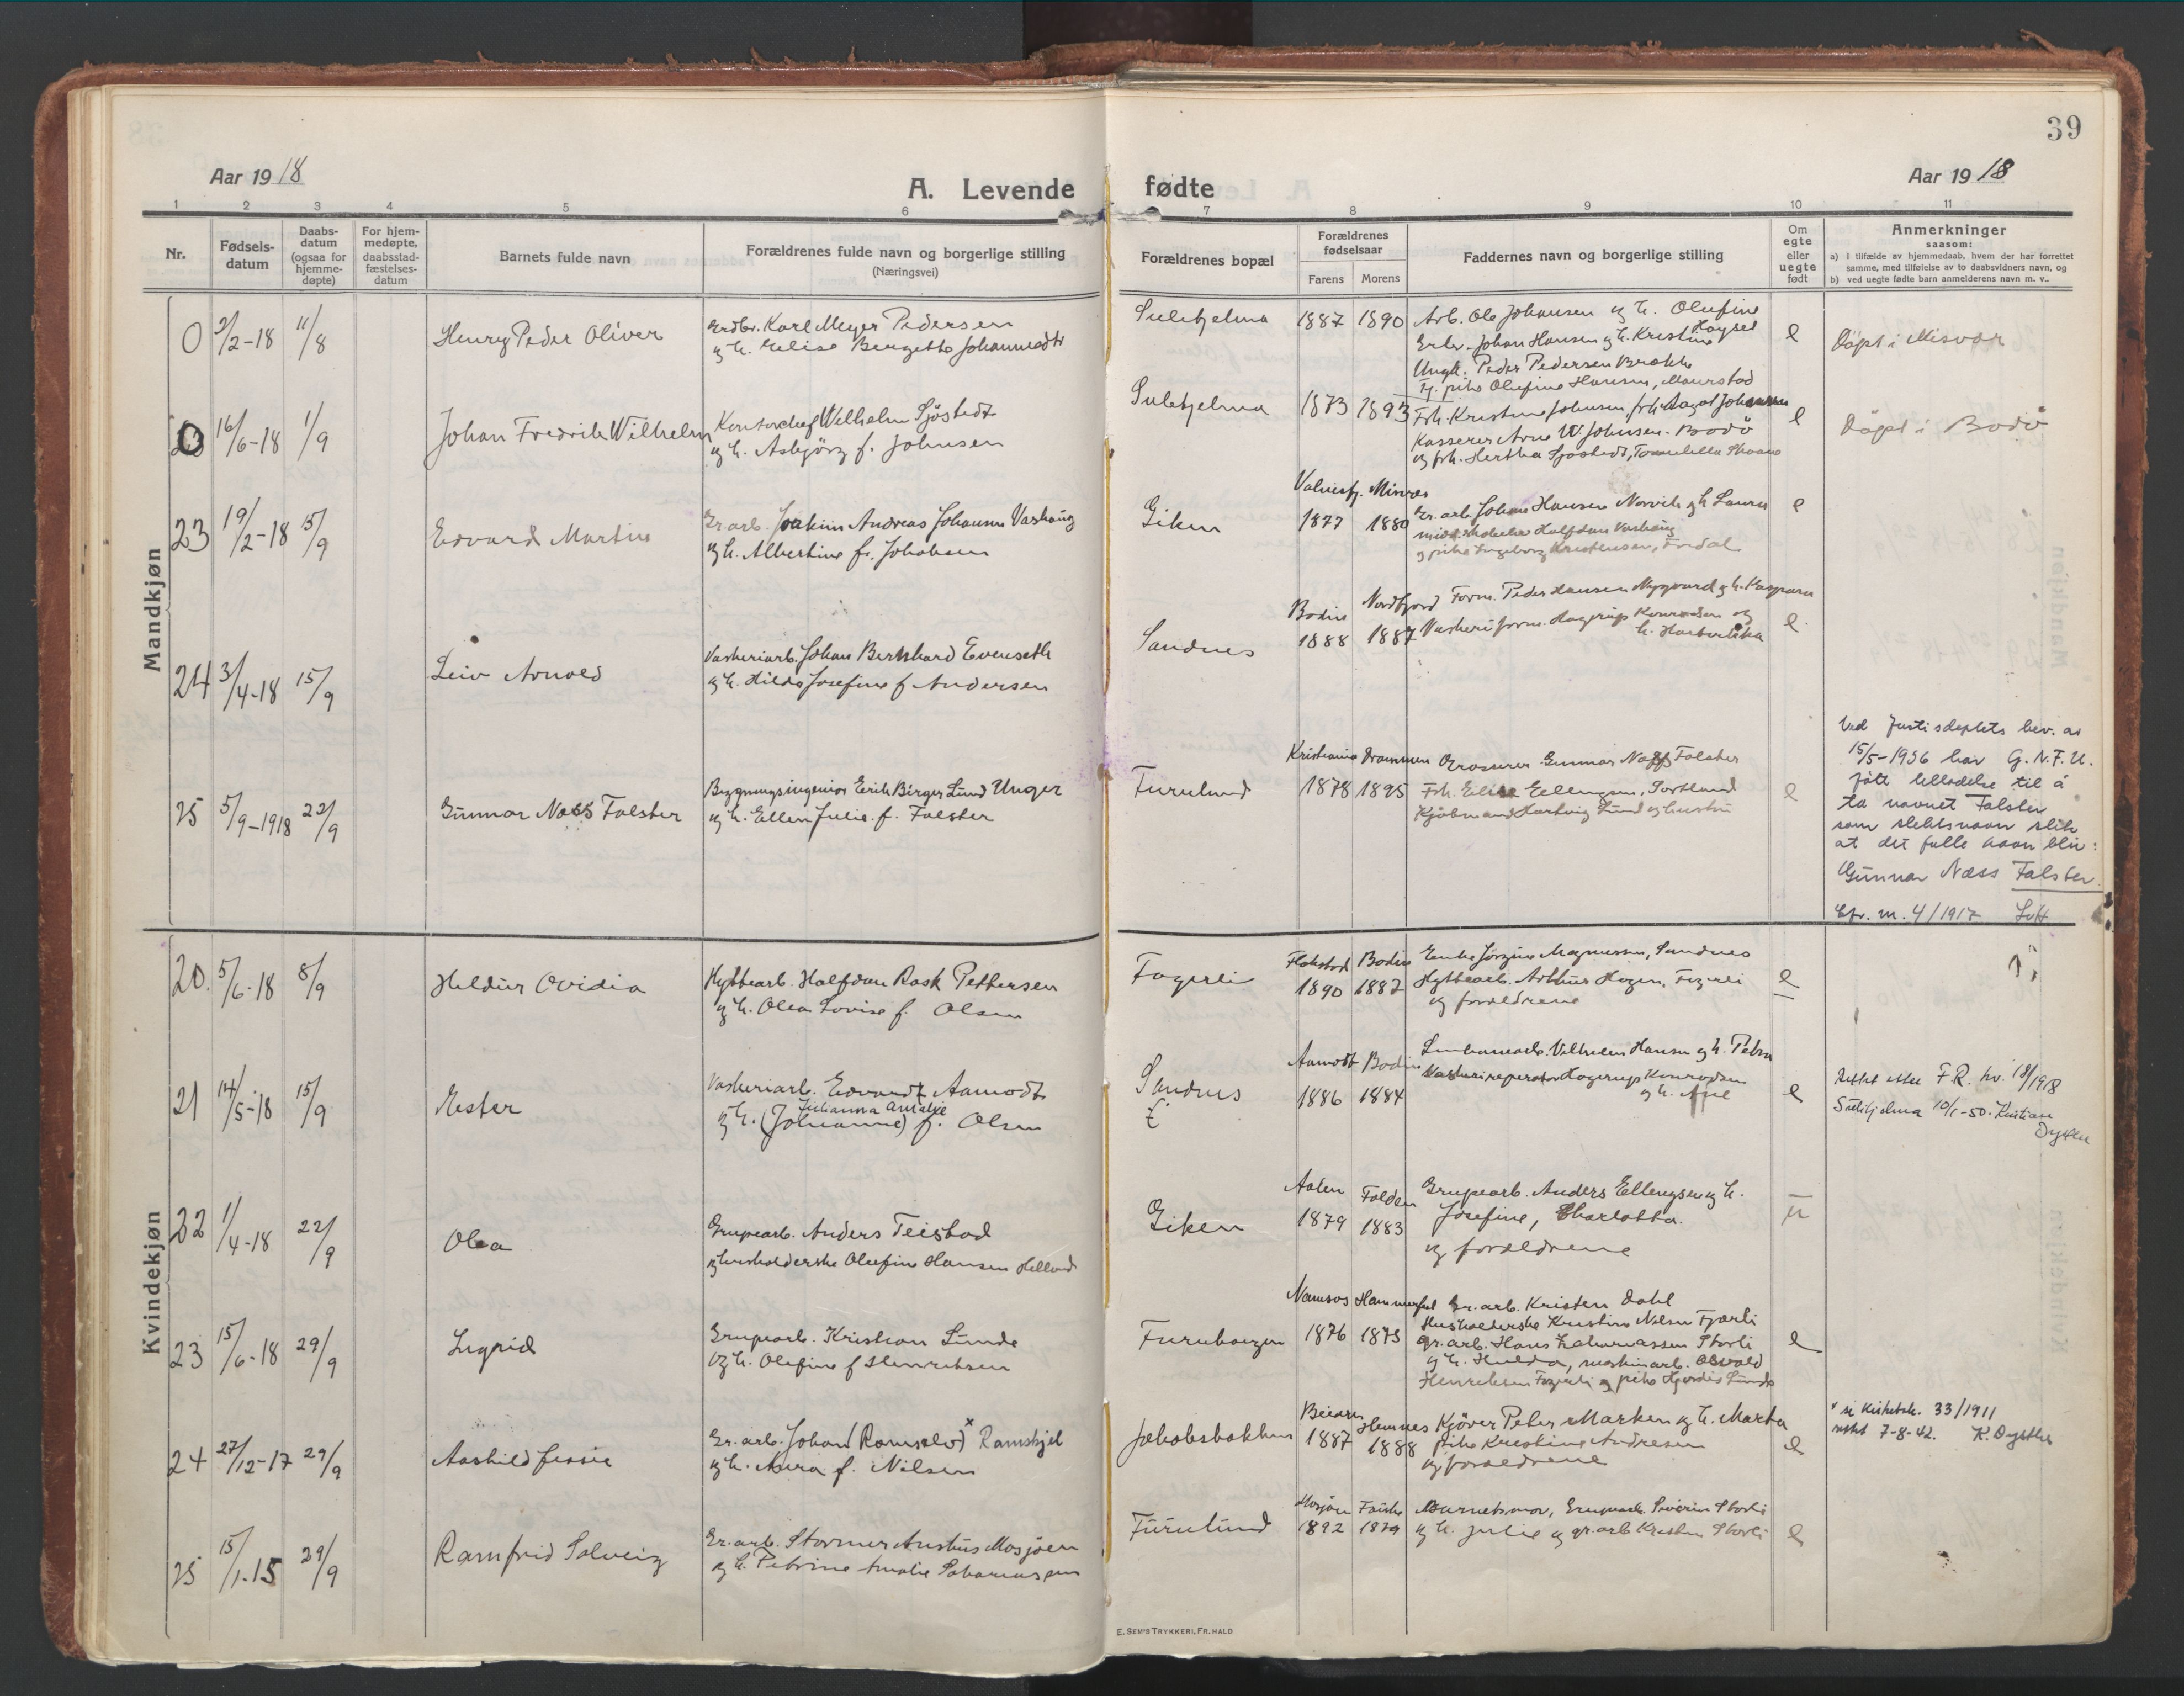 39
Aar 1918
A. Levende fødte
Aar 1918
1 2 3 4 5 6 7 8 9 10 11
Nr.
Fødsels-
datum
Daabs-
datum
(ogsaa for
hjemme-
døpte)
For hjem-
medøpte,
daabsstad-
fæstelses-
datum
Barnets fulde navn
Forældrenes fulde navn og borgerlige stilling
(Næringsvei)
Forældrenes bopæl
Forældrenes
fødselsaar
Farens Morens
Faddernes navn og borgerlige stilling
Om
egte
eller
uegte
født
Anmerkninger
saasom:
a) i tilfælde av hjemmedaab, hvem der har forrettet
samme, med tilføielse av to daabsvidners navn, og
b) ved uegte fødte barn anmelderens navn m. v..
Mandkjøn
0 2/2-18 11/8 Henry Peder Oliver
Karl Meyer Pedersen
og h. Elise Bergette
Sulitjelma 1887 1890
Arb. Ole Johansen og h. Olufine
Johan Hansen og h. Kristine
Ungk. Peder Pedersen
pike Olufine Hansen,
e
Döpt i Misvær
0 16/6-18 1/9 Johan Fredrik Wilhelm
Kontorchef Wilhelm Sjöstedt
og h. Asbjörg f. Johnsen
Sulitjelma 1873 1893
Frk. Kristine Johnsen, frk. Aagot Johnsen
Kasserer Arne W. Johnsen. Bodö
og frk. Hertha Sjöstedt,
e
Döpt i Bodö
23 19/2-18 15/9 Edvard Martin
Gr.arb. Joakim Andreas Johansen Vashaug
og h. Albertine f. Jakobsen
Giken
Valnesfj. Misvær
1877 1880
Gr. arb. Johan Hansen Norvik og h. Laura
Halfdan Vashaug
og pike Ingeborg Kristensen,
e
24 3/4-18 15/9 Leiv Arnold
Vaskeriarb. Johan Bernhard Evenseth
og h. Hilda Josefine f Andersen
Sandnes
Bodin Nordfjord
1888 1887
Form. Peder Hansen Nygaard og h. Kaspara
Vaskeriform. Hagerup Konradsen og
h.
e.
25 5/9-1918 22/9 Gunnar Næss Falster
Bygningsingeniør Erik Birger Lund Unger
og h. Ellen Julie f. Falster
Furulund
Kristiania Drammen
1878 1895
Grosserer Gunnar Næss Falster
Frk. Elise Ellingsen, Sortland
Kjøbmand Hartvig Lund og hustru
e
Ved Justisdeptets bev. av
15/5-1936 har G.N.F.U.
fått tillatelse til å
ta navnet Falster
som slektsnavn slik
at det fulle navn blir:
Gunnar Næss Falster.
Cfr. m. 4/1917
Kvindekjøn
20. 5/6-18 8/9 Heldur Ovidia
Hyttearb. Halfdan Rask Pettersen
og h. Olea Lovise f. Olsen
Fagerli
Flakstad Bodin
1890 1887
Enke Jørgine Magnussen, Sandnes
Hyttearb. Arthur Hagen, Fagerli
og forældrene
e
21 14/5-18 15/9 Ester
Vaskeriarb. Edvardt Aamodt
Johanna Amalie
og h. (Johanne) f. Olsen
Sandnes
Aamodt Bodin
1886 1884
Vilhelm Hansen og h. Petra
Vaskerireparatør Hagerup Konradsen
og h.
e
Rettet etter F.R. nr. 18/1918
Sulitjelma 10/1-50. Kristian
Dyskeland
22 1/4-18 22/9 Olea
Grupearb. Anders Teistad
og husholderske Olufine Hansen Helland
Giken
Aalen Folden
1879 1883
Grupearb. Anders Ellingsen og h.
Josefine, Charlotta.
og forældrene
u
23 15/6-18 29/9 Ingrid
Grupearb. Kristian Lunde
og h. Olufine f Henriksen
Furuhaugen
Namsos Hammerfest
1876 1875
Gr. arb. Kristen Dahl
Husholderske Kristine Nilsen Fjærli
gr.arb. Hans Zakariassen Storli
og h. Hulda, maskinarb. Osvald
Henriksen Fagerli og pike Hjørdis Lunde
e
24 27/12-17 29/9 Aashild Jessie
Gr. arb. Johan (Ramselv) x Ramskjel
og h. Anna f. Nilsen
Jakobsbakken
Beiarn Hemnes
1887 1888
Kjører Peter Marken og h. Marta
pike Kristine Andresen
og forældrene
e
x se Kirkebk. 33/1911
rettet 7-8-42.
25 15/1.15 29/9 Ramfrid Solveig
Gr. arb. Stormer Mosjøen
og h. Petrine Amalie
Furulund
Mosjøen Fauske
1892 1879
Barnets mor, Grupearb. Severin Storli
og h. Julie og gr.arb Kristen Storli
e
E. SEM'S TRYKKERI, FR.HALD